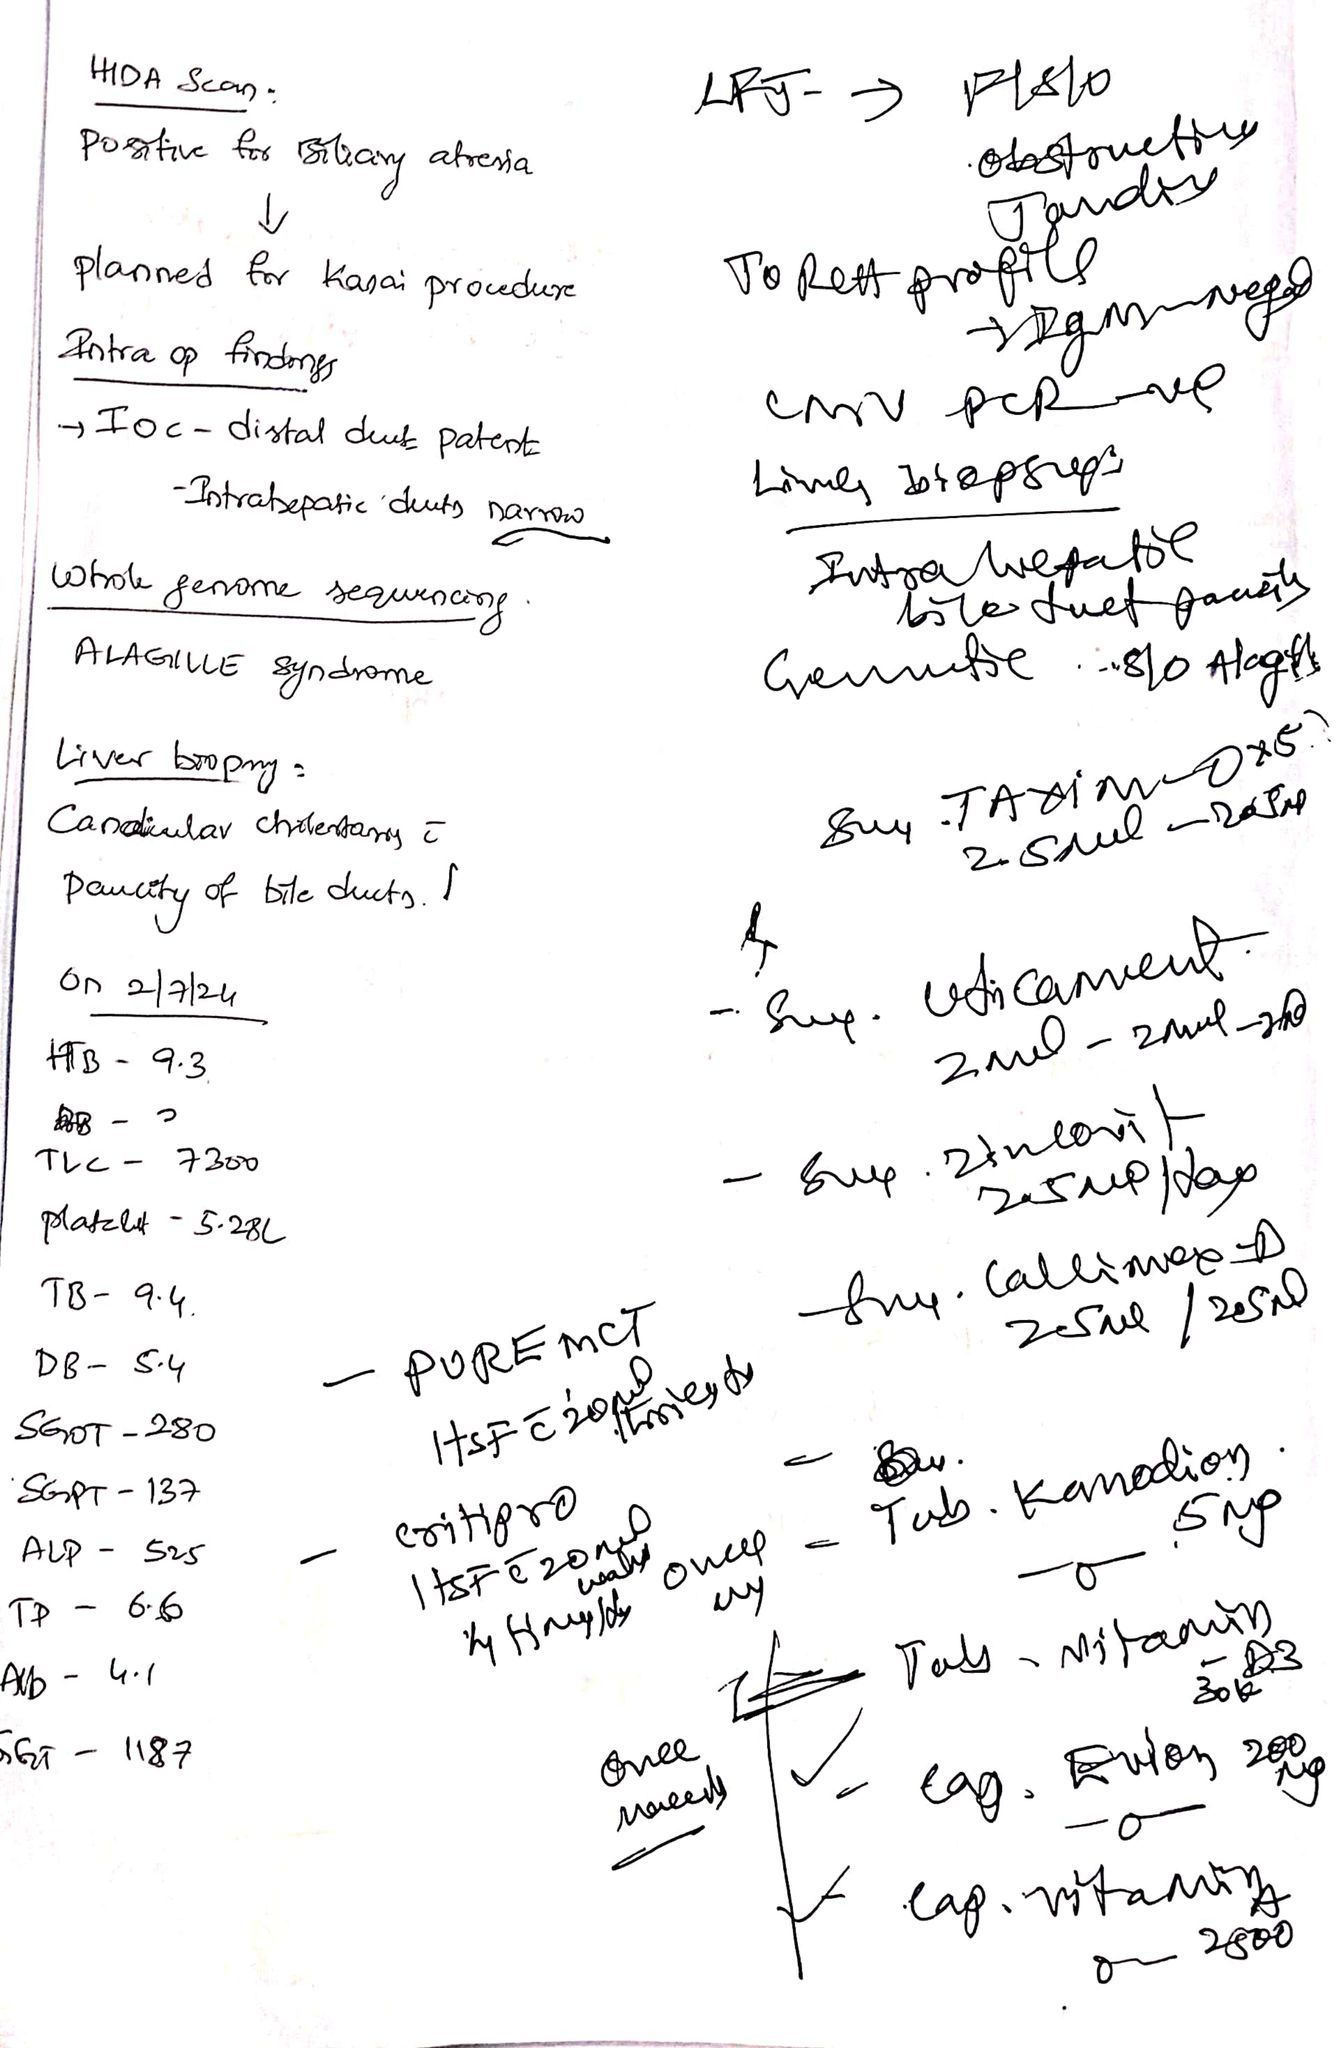 HIDA Scan:
Positive for Biliary atresia
↓
planned for Kasai procedure
Intra op findings
→ IOC - distal duct patent
- Intrahepatic ducts narrow
Whole genome sequencing.
ALAGILLE syndrome
Liver biopsy:
Canalicular cholestasis c̄
Paucity of bile ducts.
On 2/7/24
HB - 9.3
TLC - 7300
platelet - 5.28L
TB - 9.4.
DB - 5.4
SGOT - 280
SGPT - 137
ALP - 525
TP - 6.6
Alb - 4.1
GGT - 1187
- PURE MCT
1tsf c̄ 20ml
- critipro
1tsf c̄ 20ml
LFT → F/S/O
obstructive
Jandis
TORCH profile
→ IgM - negad
CMV PCR -ve
Liver biopsy
Intra hepatic
bile duct paucity
Genetic - s/o Alagille
Syr. TAXIM-O x 5
2.5ml - 2.5ml
- Syr.
2ml - 2ml - 2ml
- Syr. Zincovit
2.5ml/day
- Syr. Calcimax-D
2.5ml / 2.5ml
- Tab. Kanadion.
5mg
once
Tab - Vitamin
- D3
30k
- Cap. Evion 200
mg
Once
weekly
Cap. vitamin
A
2500